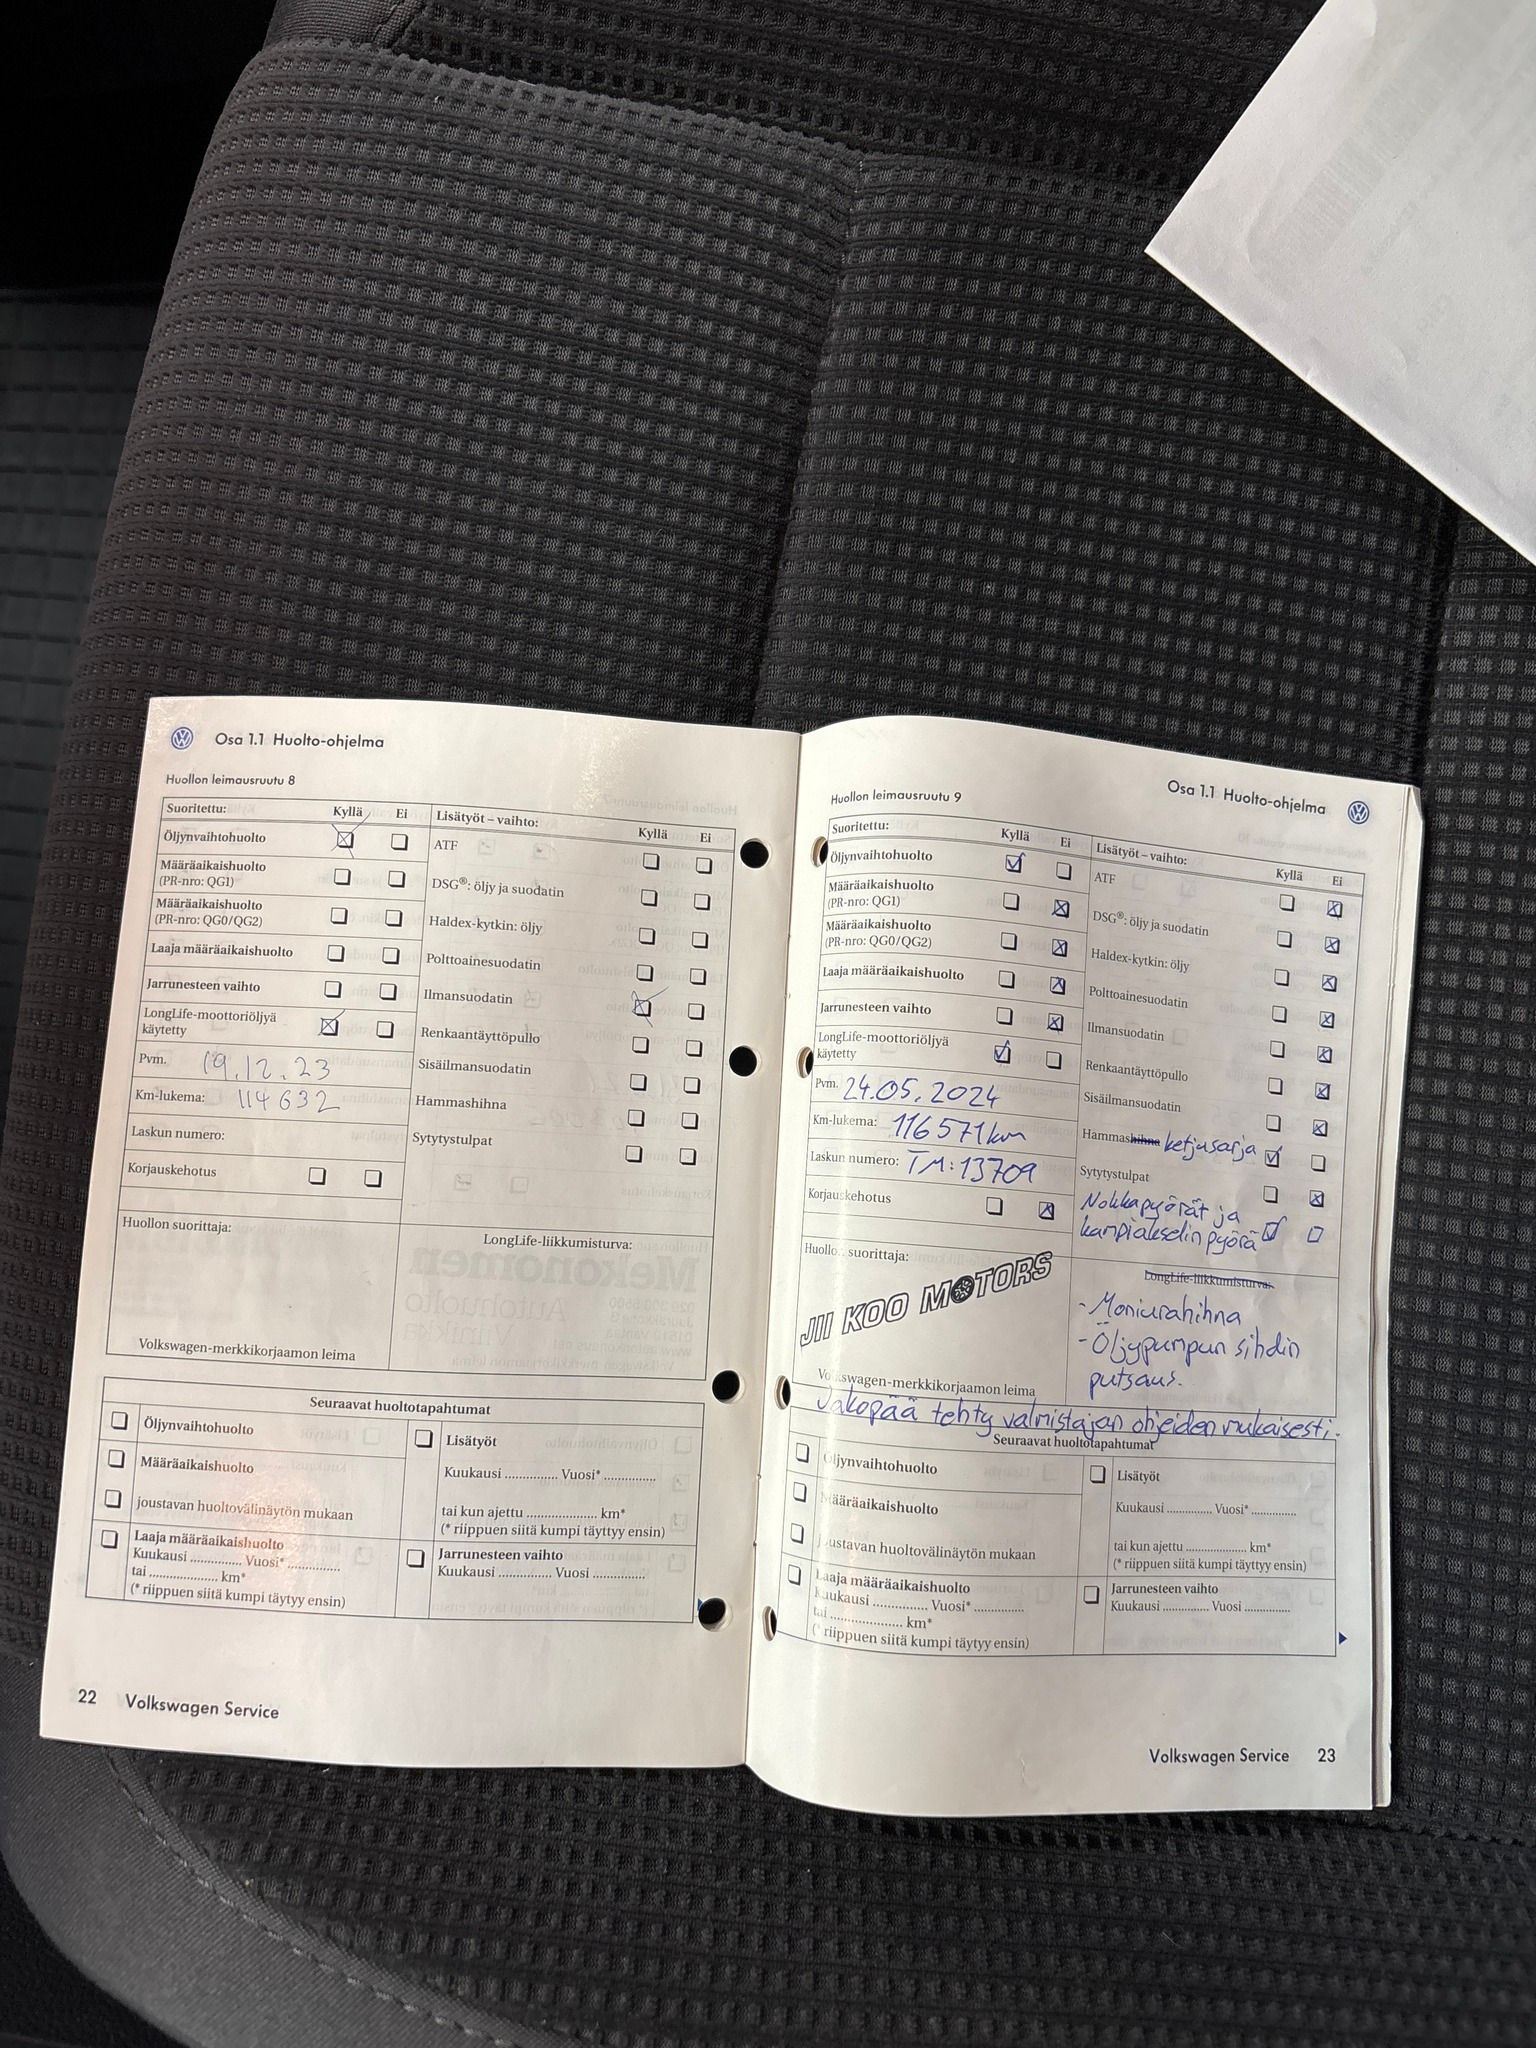 Osa 1.1 Huolto-ohjelma
Huollon leimausruutu 8
Suoritettu: Kyllä Ei
Öljynvaihtohuolto
Määräaikaishuolto
(PR-nro: QG1)
Määräaikaishuolto
(PR-nro: QG0/QG2)
Laaja määräaikaishuolto
Jarrunesteen vaihto
LongLife-moottoriöljyä
käytetty
Pvm. 19.12.23
Km-lukema: 114632
Laskun numero:
Korjauskehotus
Huollon suorittaja:
Volkswagen-merkkikorjaamon leima
Lisätyöt – vaihto: Kyllä Ei
ATF
DSG®: öljy ja suodatin
Haldex-kytkin: öljy
Polttoainesuodatin
Ilmansuodatin
Renkaantäyttöpullo
Sisäilmansuodatin
Hammashihna
Sytytystulpat
LongLife-liikkumisturva:
Seuraavat huoltotapahtumat
Öljynvaihtohuolto
Määräaikaishuolto
joustavan huoltovälinäytön mukaan
Laaja määräaikaishuolto
Kuukausi ............... Vuosi* ...............
tai .................... km*
(* riippuen siitä kumpi täytyy ensin)
Lisätyöt
Kuukausi ............... Vuosi* ...............
tai kun ajettu .................... km*
(* riippuen siitä kumpi täytyy ensin)
Jarrunesteen vaihto
Kuukausi ............... Vuosi ...............
22 Volkswagen Service
Osa 1.1 Huolto-ohjelma
Huollon leimausruutu 9
Suoritettu: Kyllä Ei
Öljynvaihtohuolto
Määräaikaishuolto
(PR-nro: QG1)
Määräaikaishuolto
(PR-nro: QG0/QG2)
Laaja määräaikaishuolto
Jarrunesteen vaihto
LongLife-moottoriöljyä
käytetty
Pvm. 24.05.2024
Km-lukema: 116571km
Laskun numero: TM:13709
Korjauskehotus
Huollon suorittaja:
JII KOO MOTORS
Volkswagen-merkkikorjaamon leima
Lisätyöt – vaihto: Kyllä Ei
ATF
DSG®: öljy ja suodatin
Haldex-kytkin: öljy
Polttoainesuodatin
Ilmansuodatin
Renkaantäyttöpullo
Sisäilmansuodatin
Hammashihna ketjusarja
Sytytystulpat
Nokkapyörät ja
kampiakselin pyörä
LongLife-liikkumisturva:
- Moniurahihna
- Öljypumpun sihdin
putsaus.
Jakopää tehty valmistajan ohjeiden mukaisesti.
Seuraavat huoltotapahtumat
Öljynvaihtohuolto
Määräaikaishuolto
joustavan huoltovälinäytön mukaan
Laaja määräaikaishuolto
Kuukausi ............... Vuosi* ...............
tai .................... km*
(* riippuen siitä kumpi täytyy ensin)
Lisätyöt
Kuukausi ............... Vuosi* ...............
tai kun ajettu .................... km*
(* riippuen siitä kumpi täytyy ensin)
Jarrunesteen vaihto
Kuukausi ............... Vuosi ...............
Volkswagen Service 23